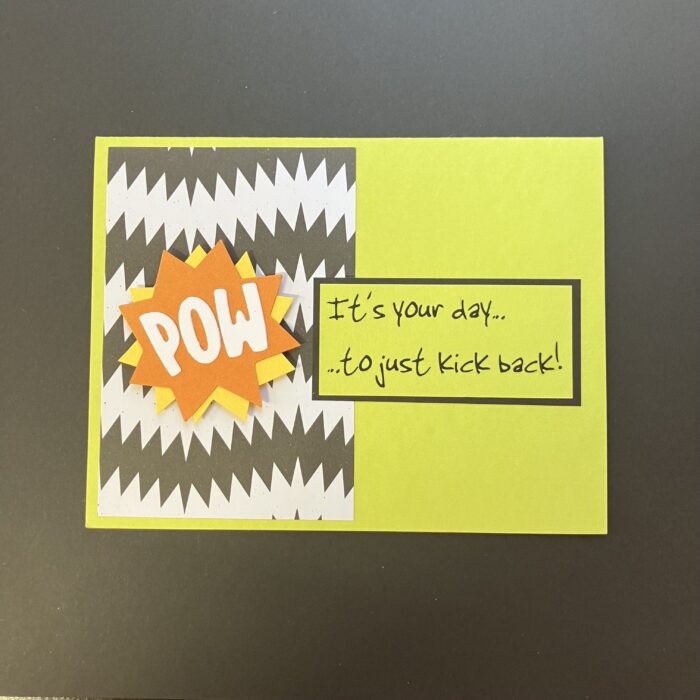 POW
It's your day...
...to just kick back!